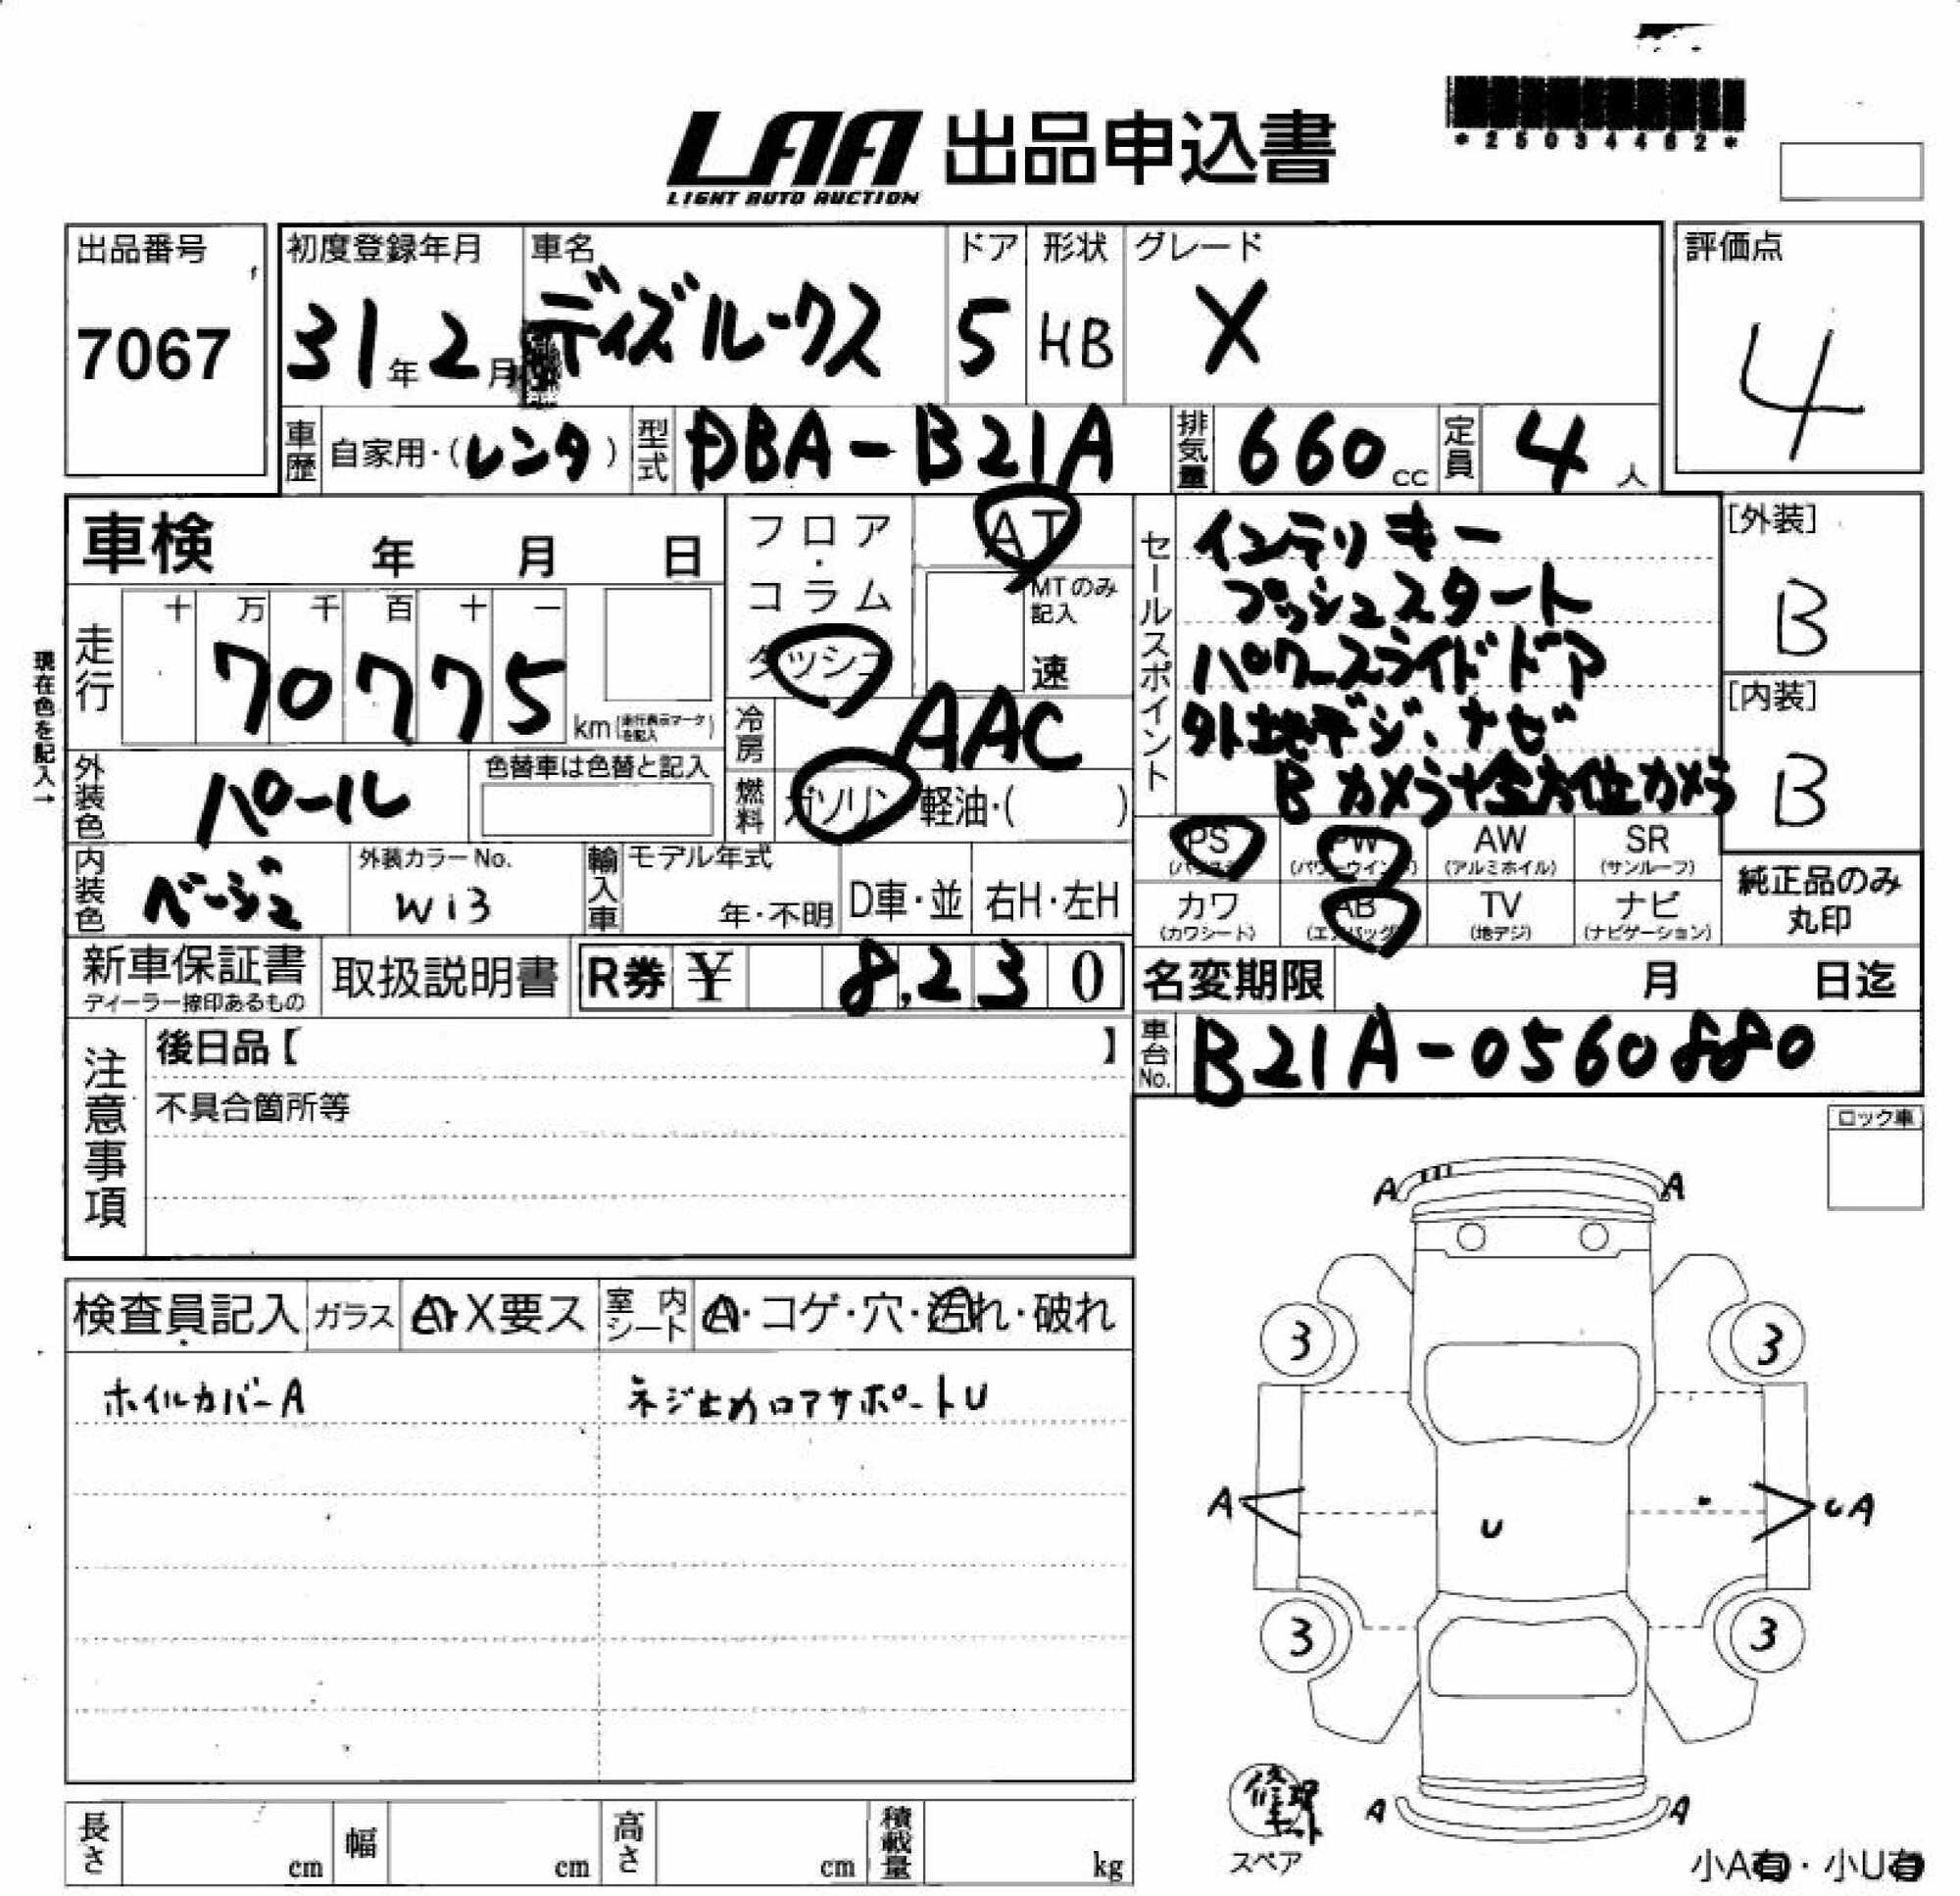 *25034462*
LAA 出品申込書
LIGHT AUTO AUCTION
出品番号
7067
初度登録年月
31年2月
車名
ディズルークス
ドア
5
形状
HB
グレード
X
評価点
4
車歴 自家用・(レンタ)
型式 DBA-B21A
排気量 660cc
定員 4人
車検 年 月 日
走行
十 万 千 百 十 一
70775
km(走行表示マークを記入)
現在色を記入→
フロア・コラム
ダッシュ
AT
MTのみ記入
速
冷房 AAC
燃料 ガソリン・軽油・( )
セールスポイント
インテリキー
プッシュスタート
パワースライドドア
外地デジ、ナビ
Bカメラ+全方位カメラ
[外装]
B
[内装]
B
外装色 パール
色替車は色替と記入
内装色 ベージュ
外装カラーNo.
Wi3
輸入車
モデル年式
年・不明
D車・並
右H・左H
PS
(パワステ)
PW
(パワーウインド)
AW
(アルミホイル)
SR
(サンルーフ)
カワ
(カワシート)
AB
(エアバッグ)
TV
(地デジ)
ナビ
(ナビゲーション)
純正品のみ
丸印
新車保証書
ディーラー捺印あるもの
取扱説明書
R券 ¥ 8,230
名変期限 月 日迄
車台No. B21A-0560880
注意事項
後日品【 】
不具合箇所等
ロック車
検査員記入
ガラス
A・X要ス
室内シート
A・コゲ・穴・汚れ・破れ
ホイルカバーA
ネジ止めロアサポートU
A
A
3
3
A
U
UA
3
3
A
A
修理キット
スペア
小A有・小U有
長さ cm
幅 cm
高さ cm
積載量 kg